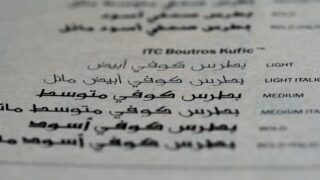 بطرس صحفي أسود
ITC Boutros Kufic™
بطرس كوفي أبيض LIGHT
بطرس كوفي أبيض مائل LIGHT ITALIC
بطرس كوفي متوسط MEDIUM
بطرس كوفي متوسط مائل MEDIUM ITA
بطرس كوفي أسود BOLD
بطرس كوفي أسود مائل BOLD